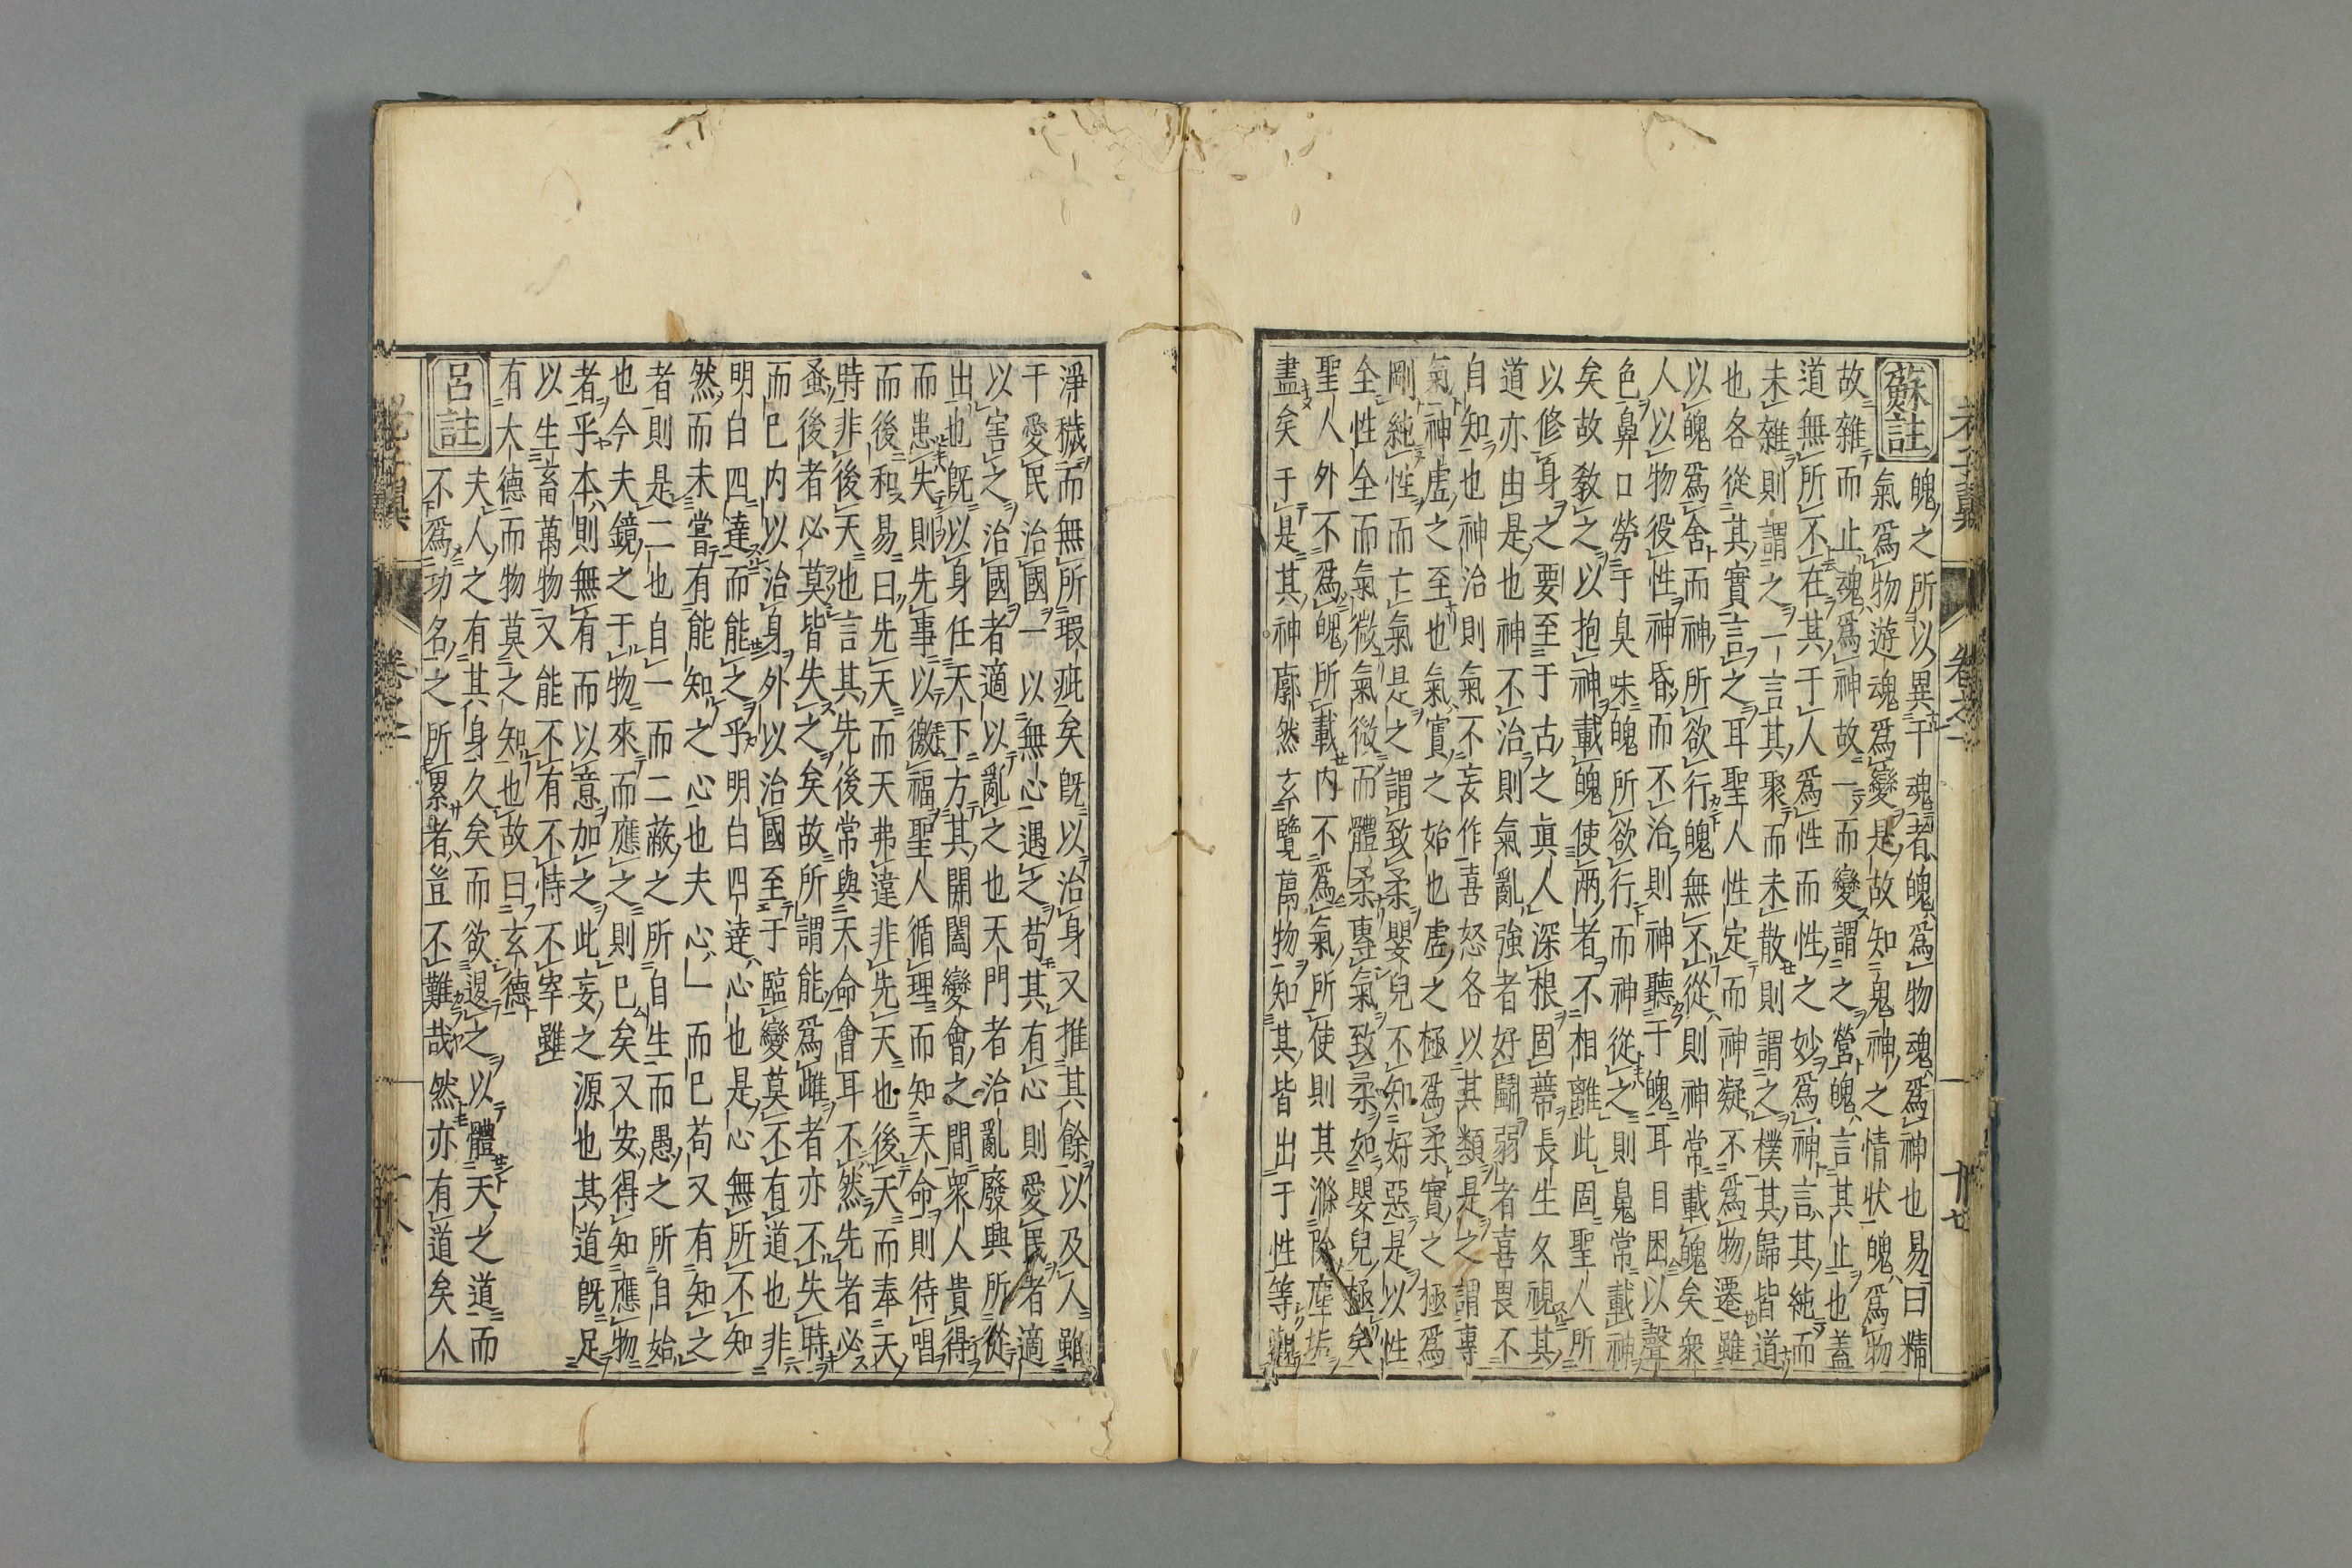 老子翼 卷之一
蘇註
魄之所以異于魂者魄爲物魂爲神也易曰精
氣爲物遊魂爲變是故知鬼神之情狀魄爲物
故雜而止魂爲神故一而變謂之營魄言其止也蓋
道無所不在其于人爲性而性之妙爲神言其純而
未雜則謂之一言其聚而未散則謂之樸其歸皆道
也各從其實言之耳聖人性定而神凝不爲物遷雖
以魄爲舍而神所欲行魄無不從則神常載魄矣衆
人以物役性神昏而不治則神聽于魄耳目困以聲
色鼻口勞于臭味魄所欲行而神從之則鬼常載神
矣故教之以抱神載魄使兩者不相離此固聖人所
以修身之要至于古之眞人深根固蔕長生久視其
道亦由是也神不治則氣亂強者好鬭弱者喜畏不
自知也神治則氣不妄作喜怒各以其類是之謂專
氣神虛之至也氣實之始也虛之極爲柔實之極爲
剛純性而亡氣是之謂致柔嬰兒不知好惡是以性
全性全而氣微氣微而體柔專氣致柔如嬰兒極矣
聖人外不爲魄所載内不爲氣所使則其滌除塵垢
盡矣于是其神廓然玄覽萬物知其皆出于性等觀
淨穢而無所瑕疵矣既以治身又推其餘以及人雖
于愛民治國一以無心遇之苟其有心則愛民者適
以害之治國者適以亂之也天門者治亂廢興所從
出也既以身任天下方其開闔變會之間衆人貴得
而患失則先事以徼福聖人循理而知天命則待唱
而後和易曰先天而天弗違非先天也後天而奉天
時非後天也言其先後常與天命會耳不然先者必
蚤後者必莫皆失之矣故所謂能爲雌者亦不失時
而已内以治身外以治國至于臨變莫不有道也非
明白四達而能之乎明白四達心也是心無所不知
然而未嘗有能知之心也夫心一而已苟又有知之
者則是二也自一而二蔽之所自生而愚之所自始
也今夫鏡之于物來而應之則已矣又安得知應物
者乎本則無有而以意加之此妄之源也其道既足
以生畜萬物又能不有不恃不宰雖
有大德而物莫之知也故曰玄德
呂註
夫人之有其身久矣而欲退之以體天之道而
不爲功名之所累者豈不難哉然亦有道矣人